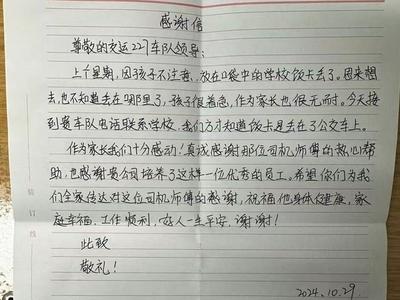 感谢信
尊敬的交运227车队领导:
上个星期,因孩子不注意,放在口袋中的学校饭卡丢了。回来想
去,也不知道丢在哪里了,孩子很着急,作为家长也很无耐。今天接
到贵车队电话联系学校,我们方才知道饭卡是丢在了公交车上。
作为家长我们十分感动!真诚感谢那位司机师傅的热心帮
助,也感谢贵公司培养了这样一位优秀的员工。希望你们为我
们全家传达对这位司机师傅的感谢,祝福他身体健康,家
庭幸福,工作顺利,好人一生平安,谢谢!
此致
敬礼!
2024.10.29.
装订线